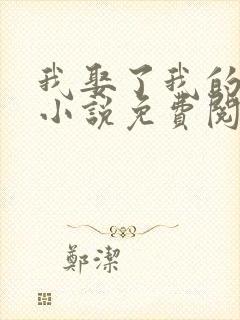 我娶了我的
小說免費閱
鄭潔